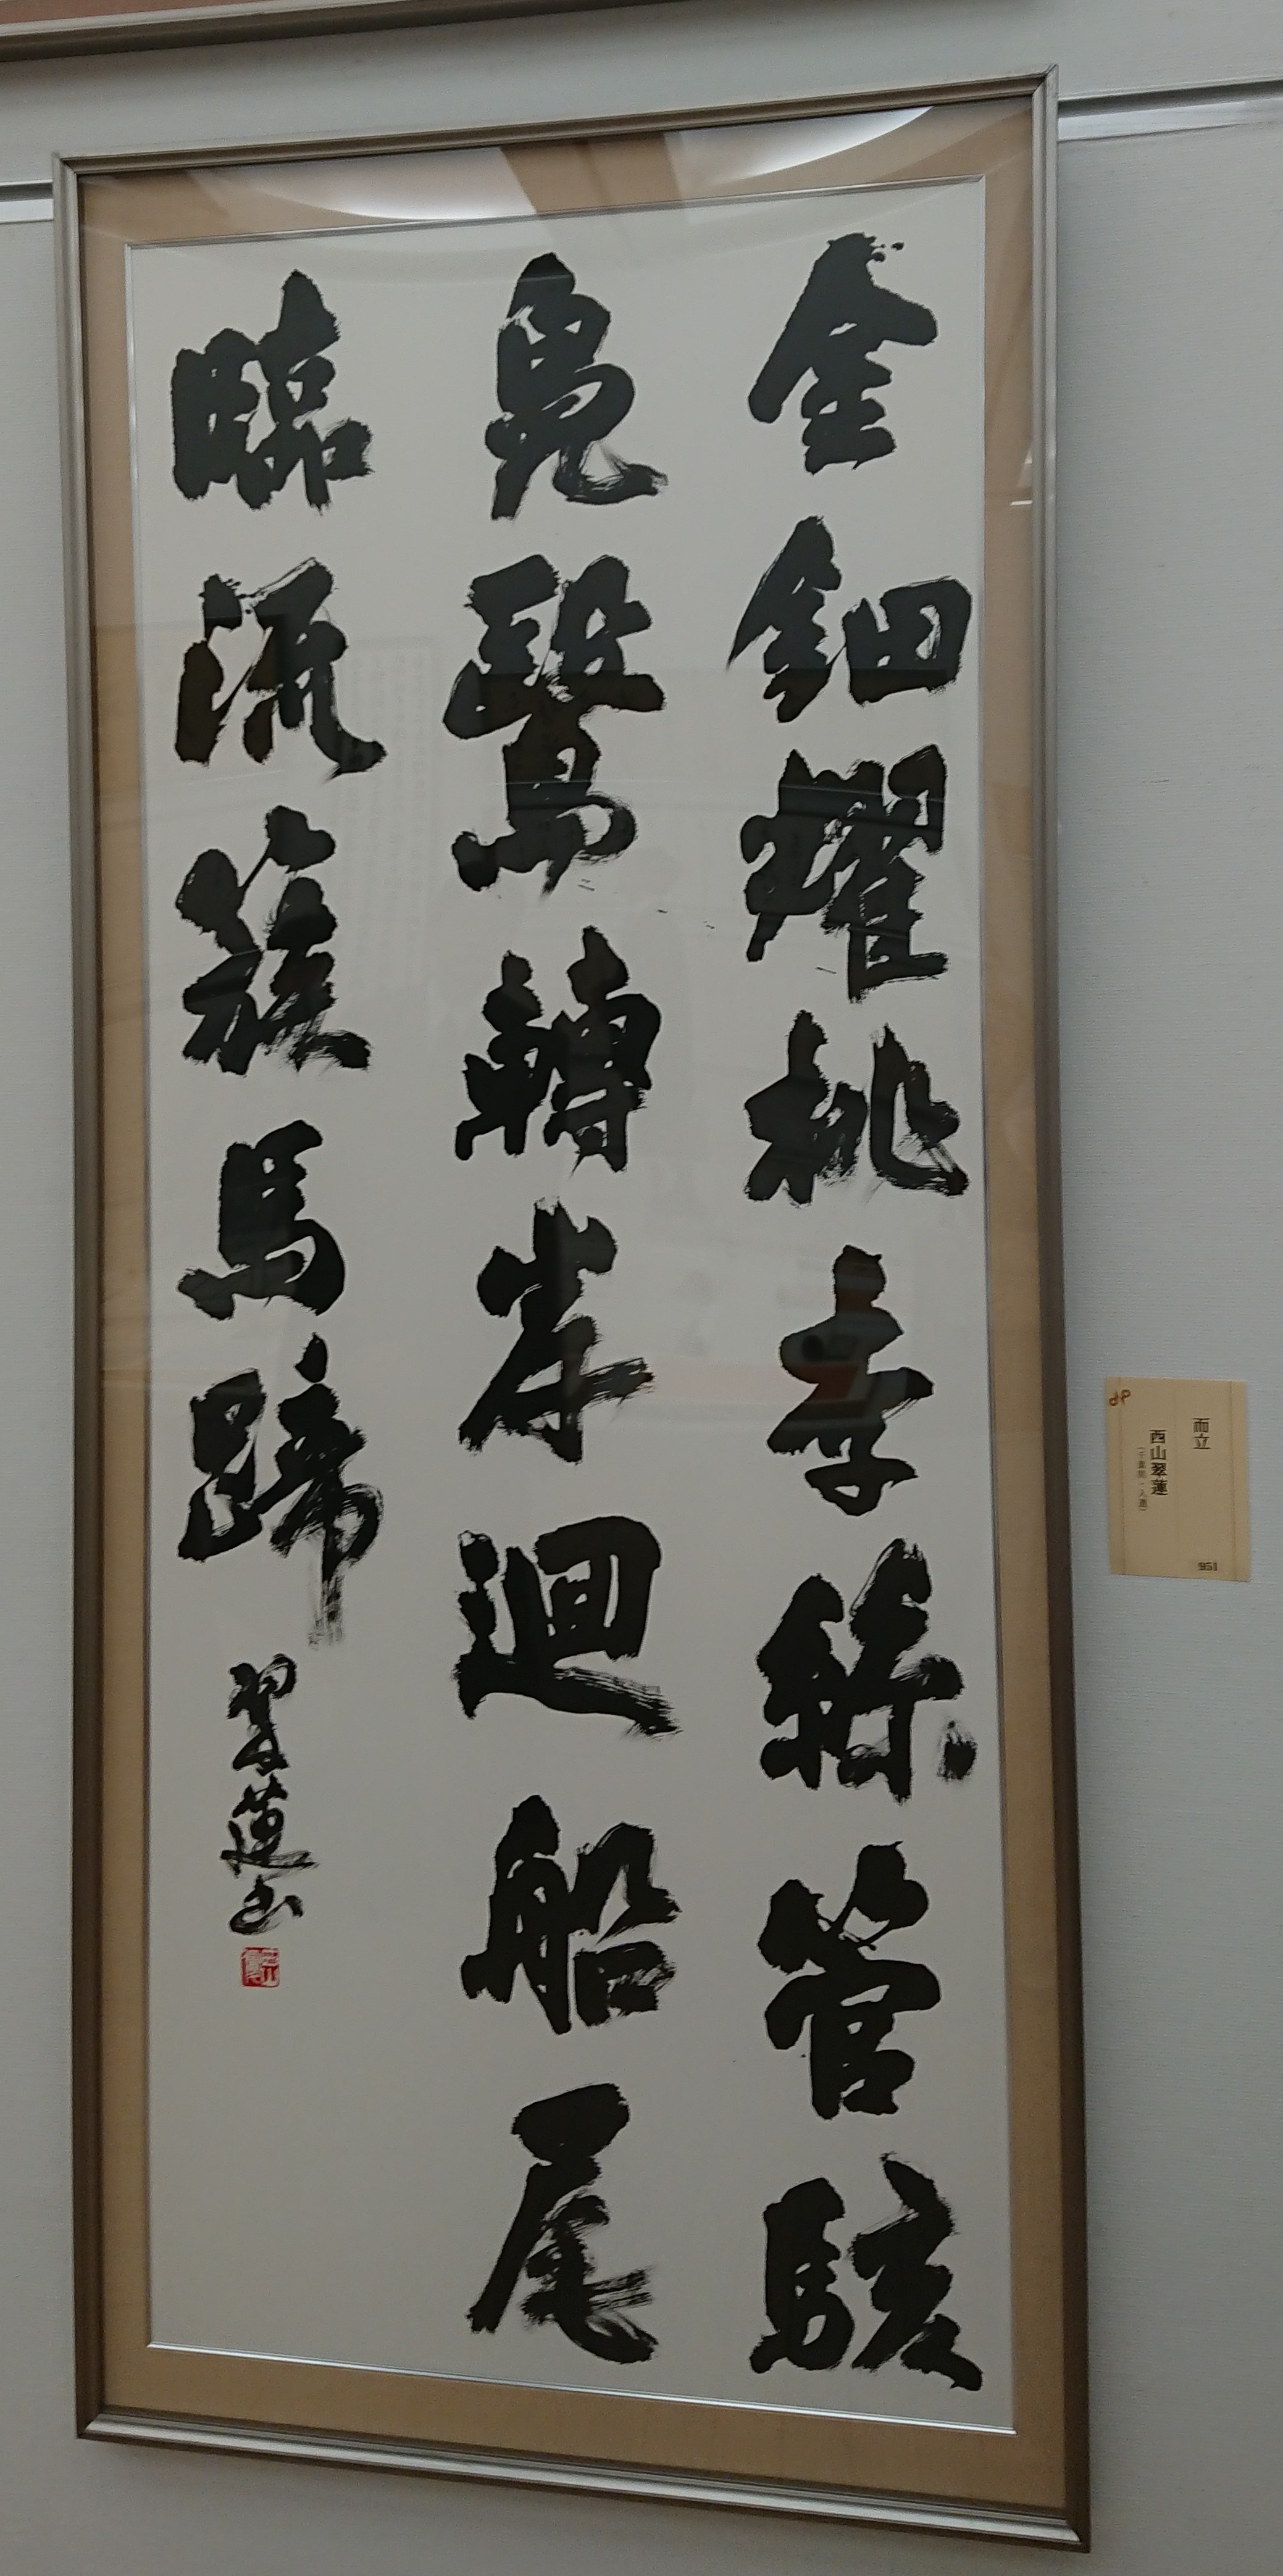 金鈿耀桃李絲管駭
鳧鷖轉岸迴船尾
臨流簇馬蹄
翠蓮书
而立
西山翠蓮
951